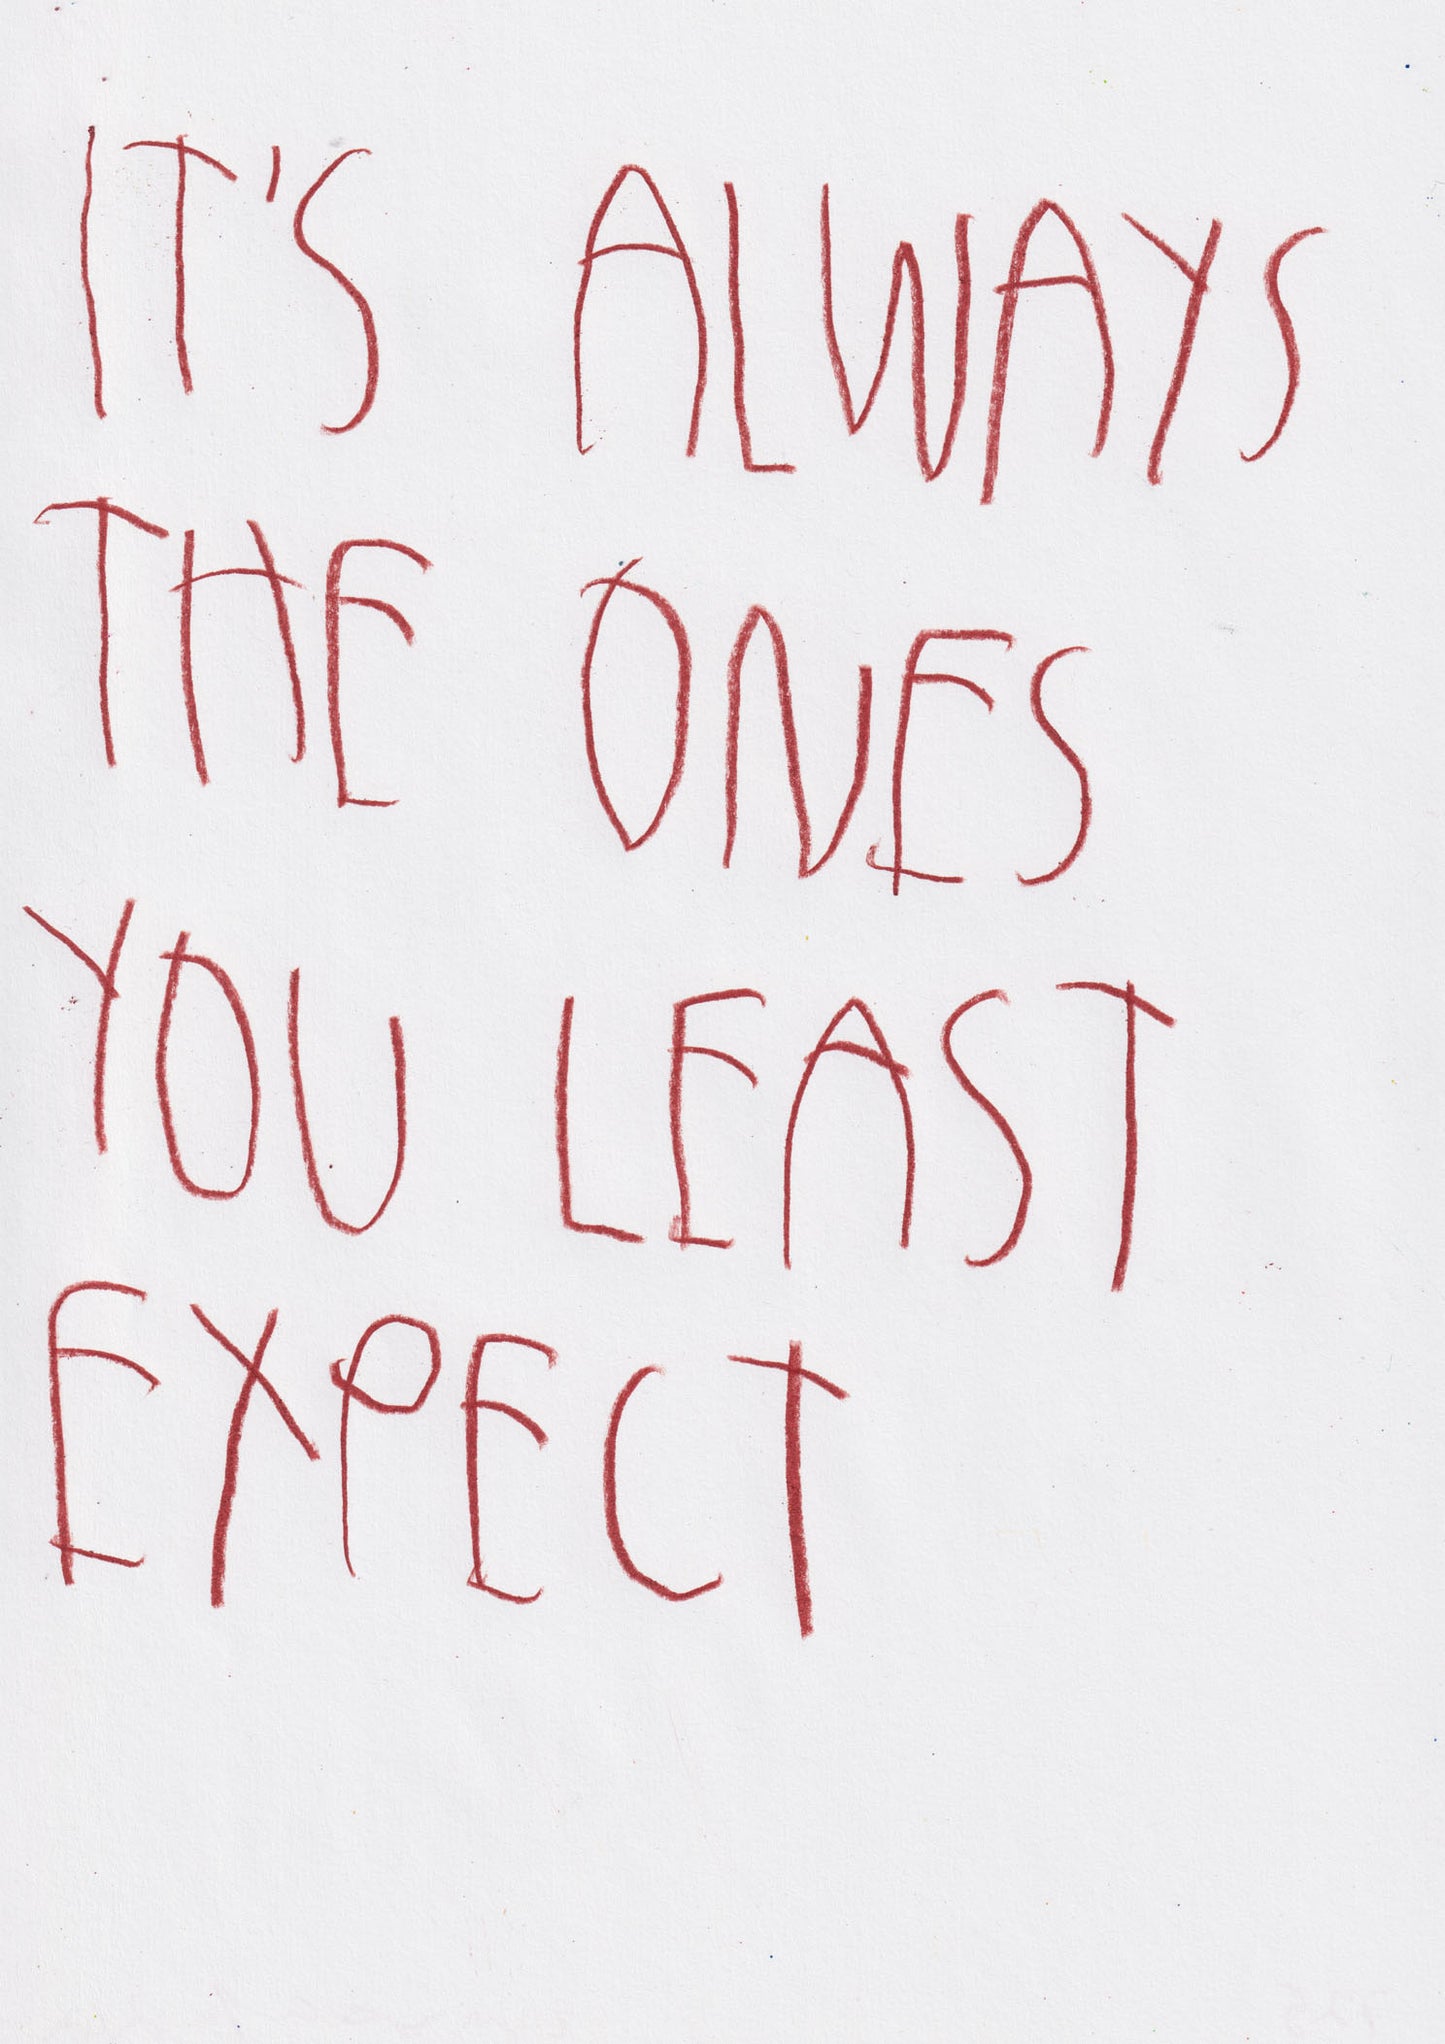 IT'S ALWAYS
THE ONES
YOU LEAST
EXPECT